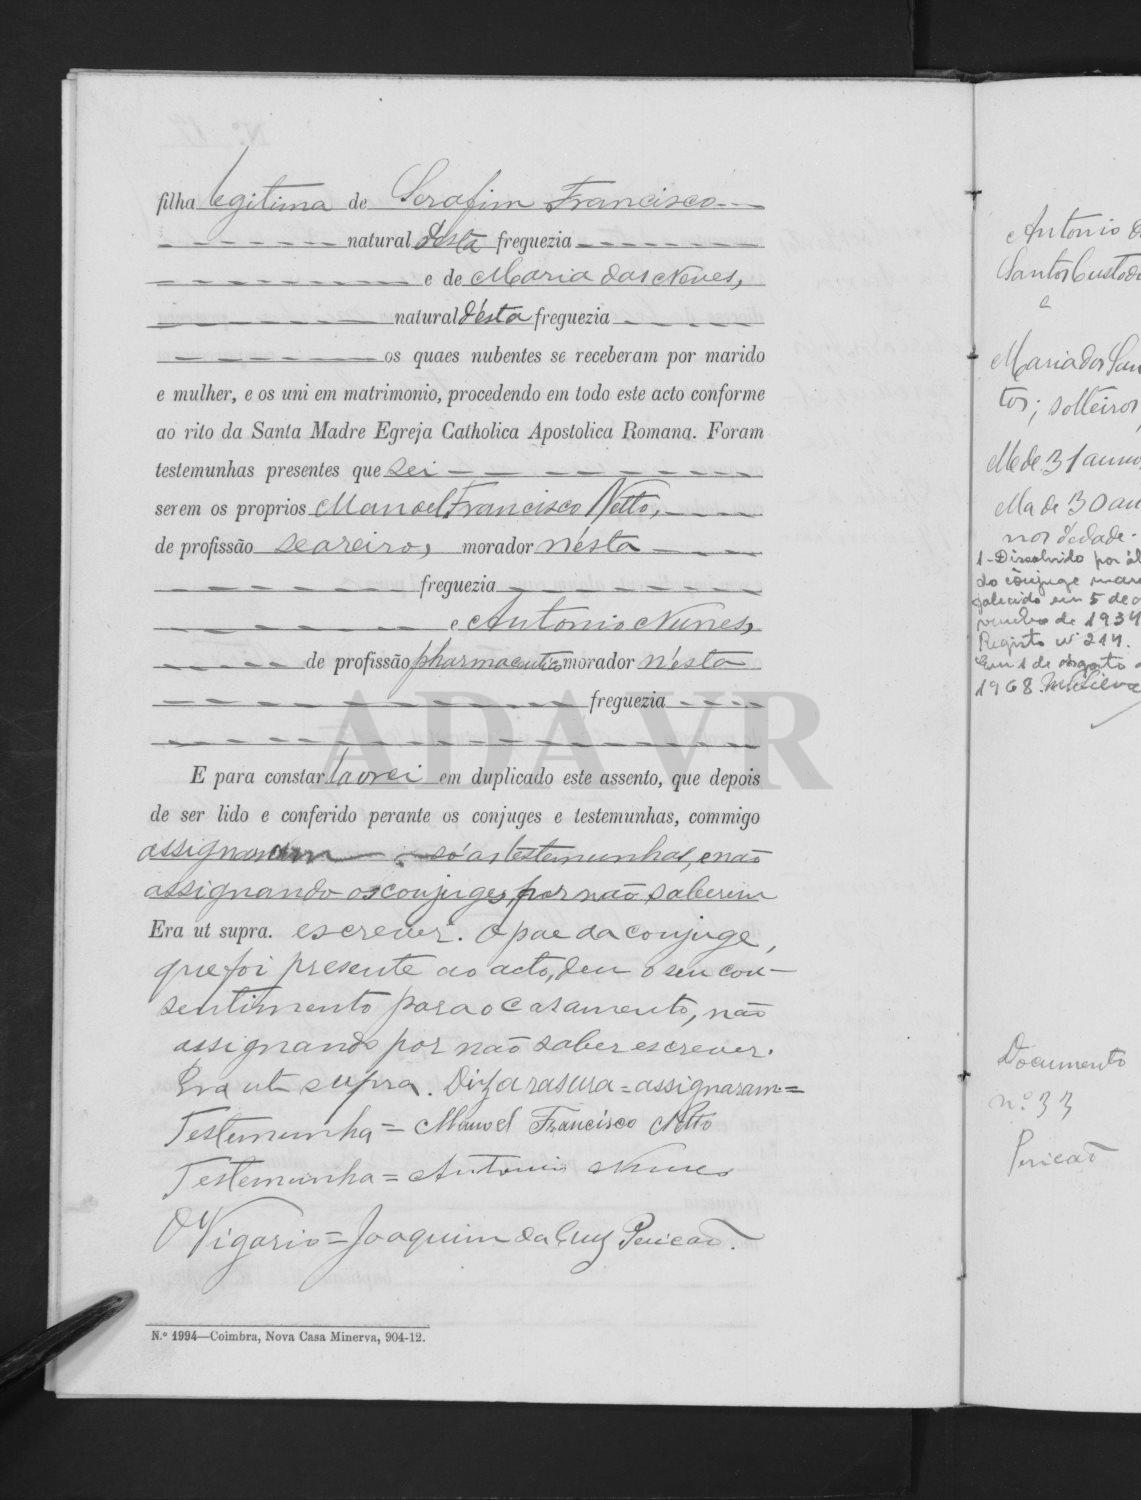 filha legitima de Serafim Francisco
natural désta freguezia
e de Maria das Neves,
natural désta freguezia
os quaes nubentes se receberam por marido
e mulher, e os uni em matrimonio, procedendo em todo este acto conforme
ao rito da Santa Madre Egreja Catholica Apostolica Romana. Foram
testemunhas presentes que sei
serem os proprios Manoel Francisco Netto,
de profissão seareiro, morador nésta
freguezia
e Antonio Nunes,
de profissão pharmaceutico morador nésta
freguezia
ADAVR
E para constar lavrei em duplicado este assento, que depois
de ser lido e conferido perante os conjuges e testemunhas, commigo
assignaram só as testemunhas, e não
assignando os conjuges, por não saberem
Era ut supra. escrever. O pae da conjuge,
que foi presente ao acto, deu o seu con-
sentimento para o casamento, não
assignando por não saber escrever.
Era ut supra. Diz a rasura = assignaram =
Testemunha = Manoel Francisco Netto
Testemunha = Antonio Nunes
O Vigario = Joaquim da Cruz Pericão.
N.º 1994—Coimbra, Nova Casa Minerva, 904-12.
Antonio d
Santos Custodi
e
Maria dos San
tos; solteiros,
elle de 31 annos,
ella de 30 an
nos d'edade.
1-Dissolvido por ób
do cônjuge mari
falecido em 5 de
vembro de 1934
Registo nº 214.
Em 1 de agosto
1968.
Documento
n.º 33
Pericão